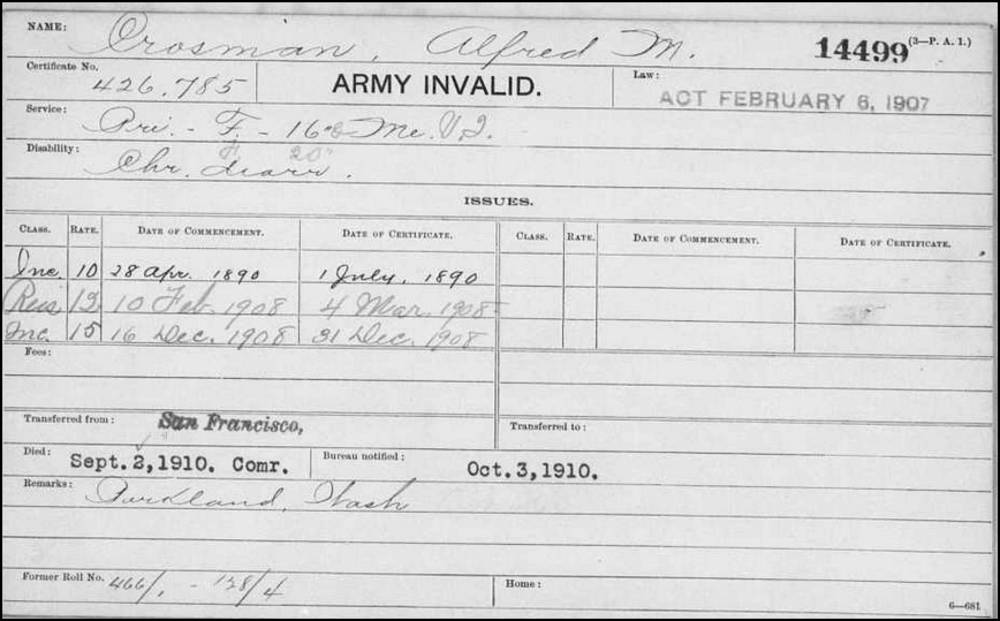 NAME: Crosman, Alfred M. 14499 (3—P. A. I.)
Certificate No. 426,785 ARMY INVALID. Law: ACT FEBRUARY 6, 1907
Service: Pri. - F. - 16 Me. V. I.
Disability: Chr. Diarr.
ISSUES.
CLASS. RATE. DATE OF COMMENCEMENT. DATE OF CERTIFICATE. CLASS. RATE. DATE OF COMMENCEMENT. DATE OF CERTIFICATE.
Inc. 10 28 Apr. 1890 1 July, 1890
Reis 12 10 Feb. 1908 4 Mar. 1908
Inc. 15 16 Dec. 1908 31 Dec. 1908
Fees:
Transferred from: San Francisco, Transferred to:
Died: Sept. 2, 1910. Comr. Bureau notified: Oct. 3, 1910.
Remarks: Parkland, Wash
Former Roll No. 466/1 - 128/4 Home:
6—681